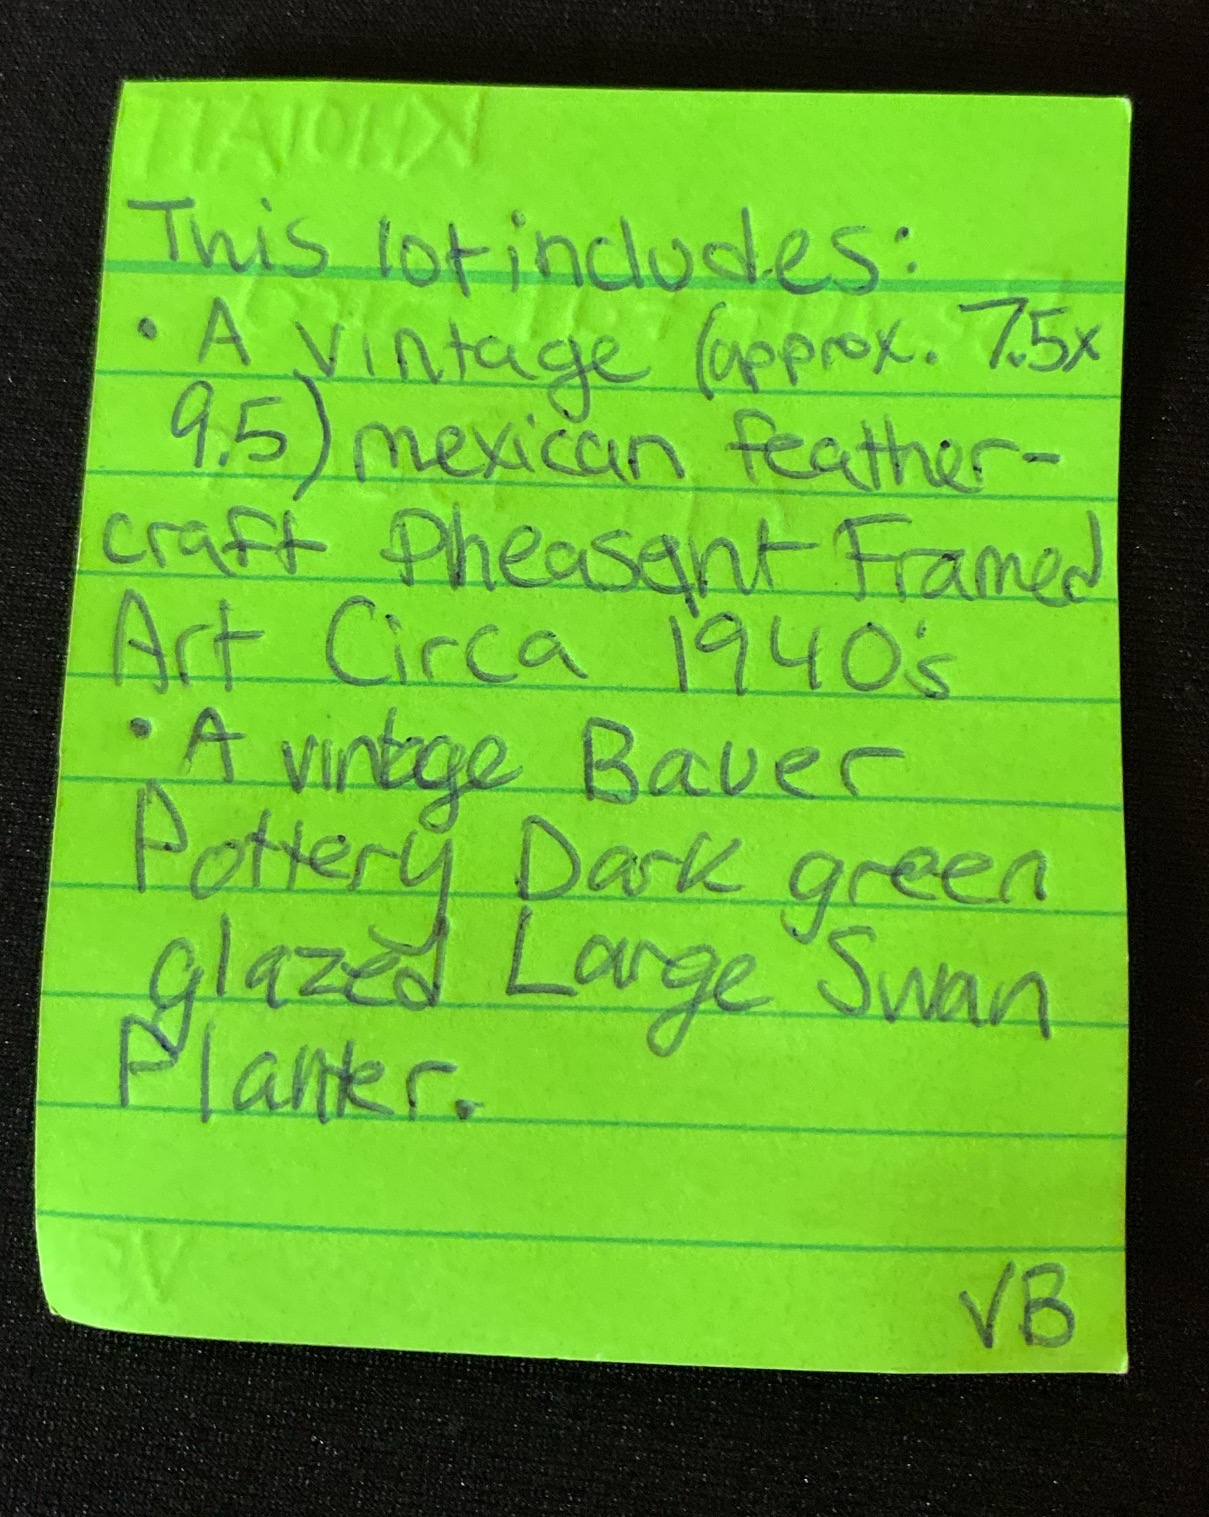 This lot includes:
• A vintage (approx. 7.5x
9.5) mexican feather-
craft Pheasant Framed
Art Circa 1940's
• A vintage Bauer
Pottery Dark green
glazed Large Swan
Planter.
VB